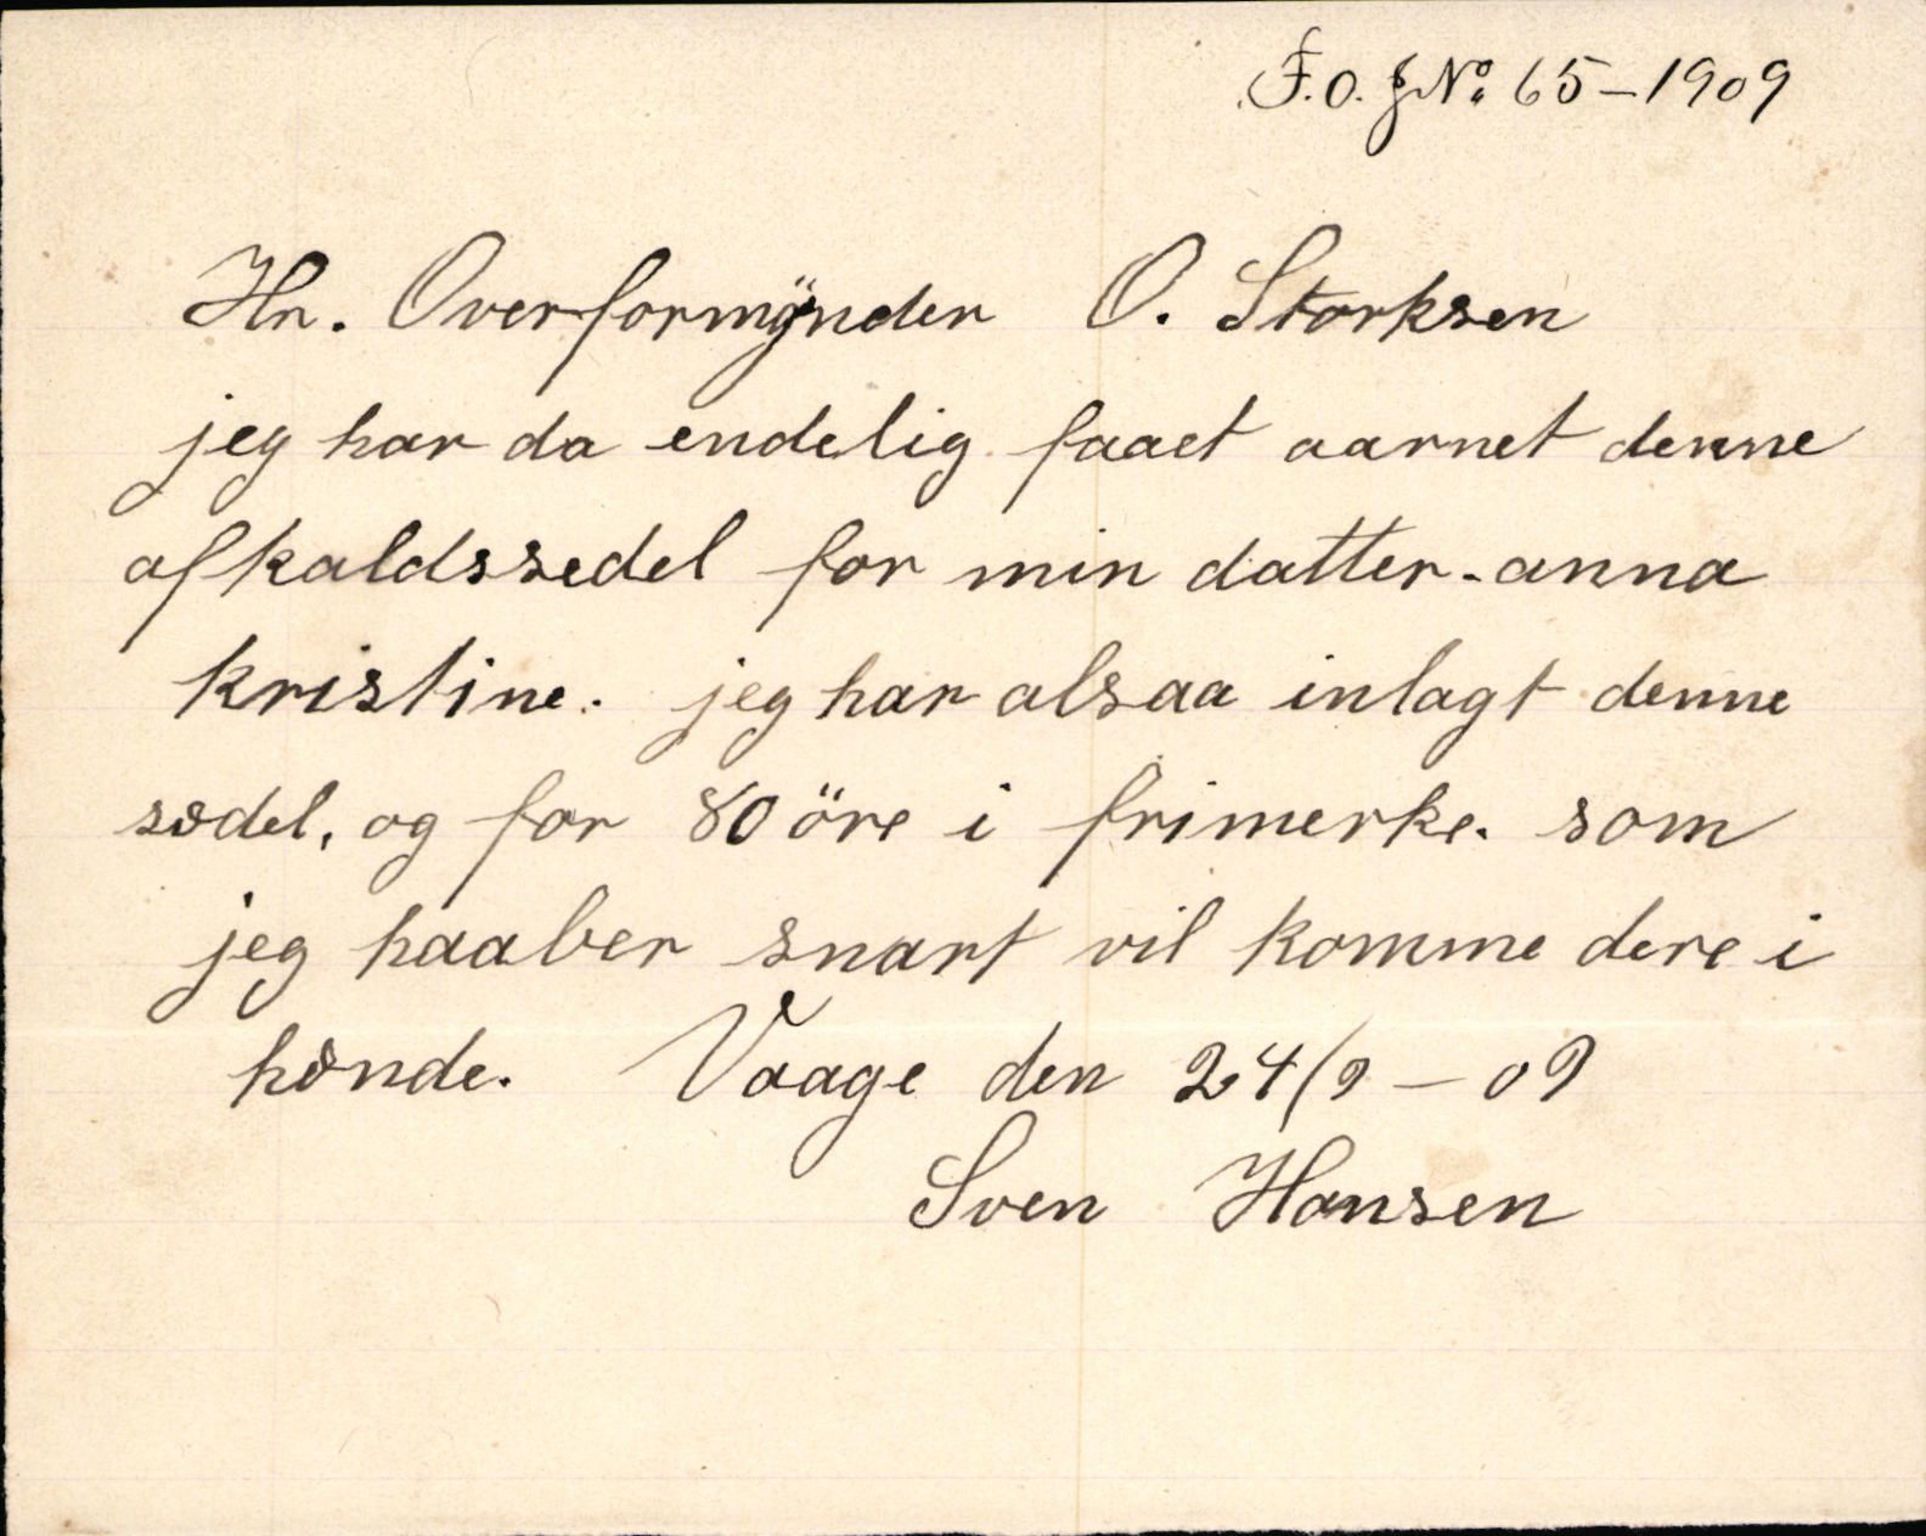 F.O. J No 65-1909
Hr. Overformÿnder O. Storksen
jeg har da endelig faaet aarnet denne
afkaldssedel for min datter-anna
kristine. jeg har alsaa inlagt denne
sædel, og for 80 öre i frimerke. som
jeg haaber snart vil komme dere i
hænde. Vaage den 24/9 - 09
Sven Hansen